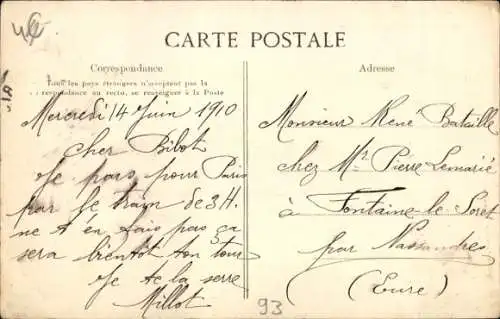 CARTE POSTALE
Correspondance
Tous les pays étrangers n'acceptent pas la
correspondance au recto, se renseigner à la Poste
Mercredi 14 Juin 1910
Cher Bibot
Je pars pour Paris
par le train de 3H.
ne t en fais pas ça
sera bientôt ton tour
Je te la serre
Millot
Adresse
Monsieur René Bataille
chez Mr Pierre Lemarié
à Fontaine-le-Soret
par Nassandres
(Eure)
93